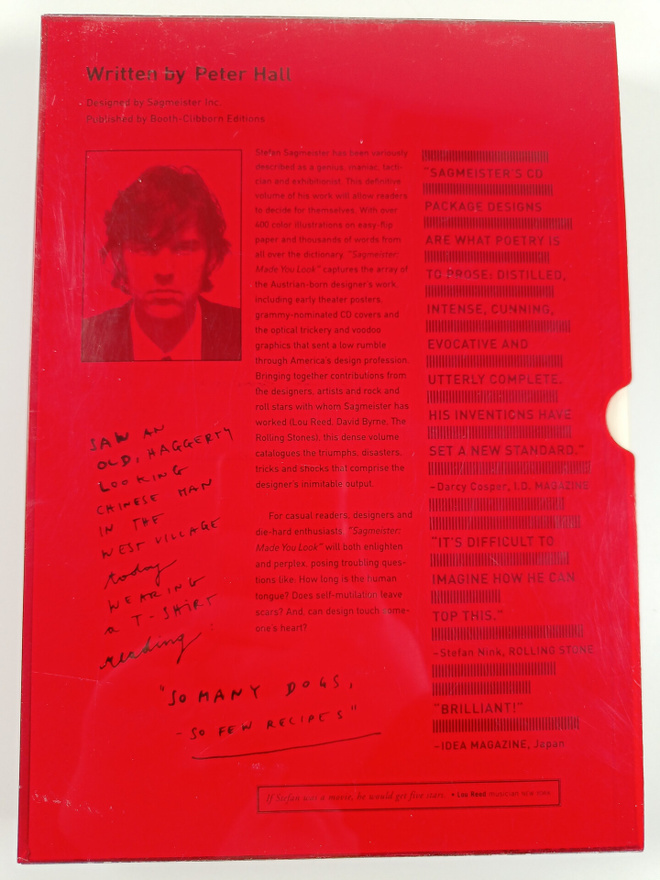 Written by Peter Hall
Designed by Sagmeister Inc.
Published by Booth-Clibborn Editions
Stefan Sagmeister has been variously
described as a genius, maniac, tacti-
cian and exhibitionist. This definitive
volume of his work will allow readers
to decide for themselves. With over
400 color illustrations on easy-flip
paper and thousands of words from
all over the dictionary, "Sagmeister:
Made You Look" captures the array of
the Austrian-born designer's work,
including early theater posters,
grammy-nominated CD covers and
the optical trickery and voodoo
graphics that sent a low rumble
through America's design profession.
Bringing together contributions from
the designers, artists and rock and
roll stars with whom Sagmeister has
worked (Lou Reed, David Byrne, The
Rolling Stones), this dense volume
catalogues the triumphs, disasters,
tricks and shocks that comprise the
designer's inimitable output.
For casual readers, designers and
die-hard enthusiasts, "Sagmeister:
Made You Look" will both enlighten
and perplex, posing troubling ques-
tions like: How long is the human
tongue? Does self-mutilation leave
scars? And, can design touch some-
one's heart?
"SAGMEISTER'S CD
PACKAGE DESIGNS
ARE WHAT POETRY IS
TO PROSE: DISTILLED,
INTENSE, CUNNING,
EVOCATIVE AND
UTTERLY COMPLETE.
HIS INVENTIONS HAVE
SET A NEW STANDARD."
–Darcy Cosper, I.D. MAGAZINE
"IT'S DIFFICULT TO
IMAGINE HOW HE CAN
TOP THIS."
–Stefan Nink, ROLLING STONE
"BRILLIANT!"
–IDEA MAGAZINE, Japan
SAW AN
OLD, HAGGERTY
LOOKING
CHINESE MAN
IN THE
WEST VILLAGE
today
WEARING
a T-SHIRT
reading:
"SO MANY DOGS,
-SO FEW RECIPES"
If Stefan was a movie, he would get five stars. • Lou Reed musician New York